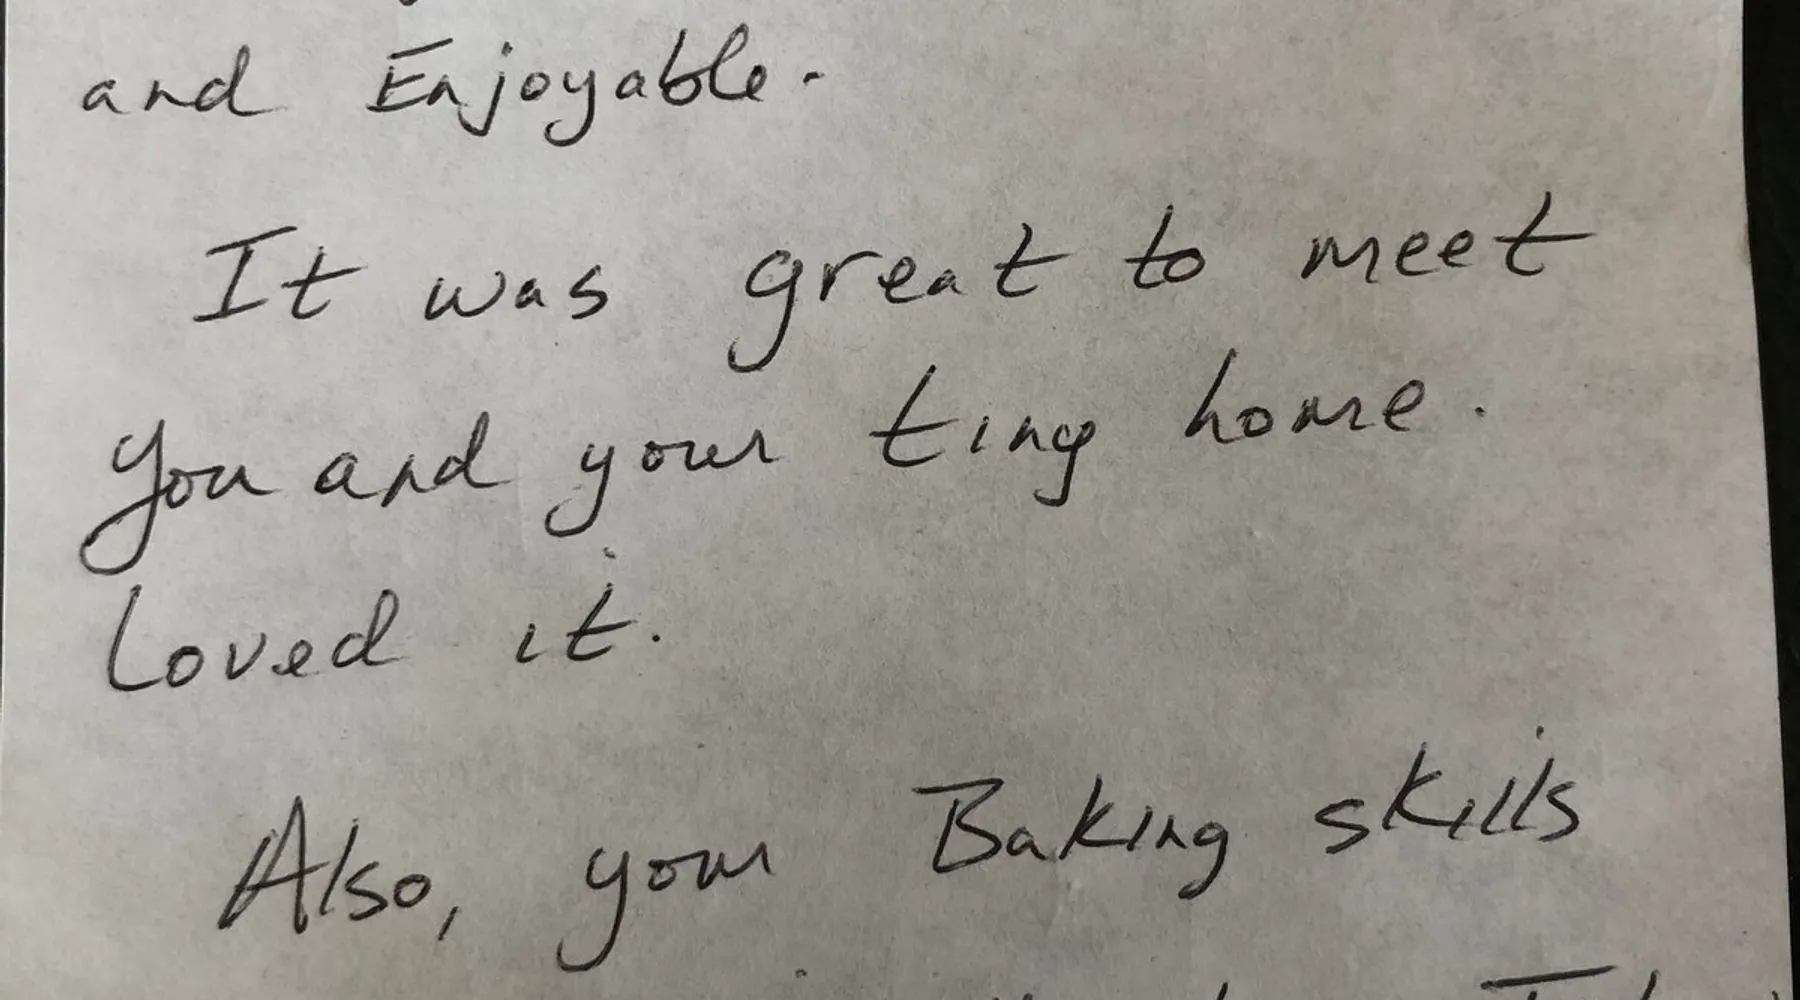 and Enjoyable.
It was great to meet
you and your ting home.
Loved it.
Also, your Baking skills